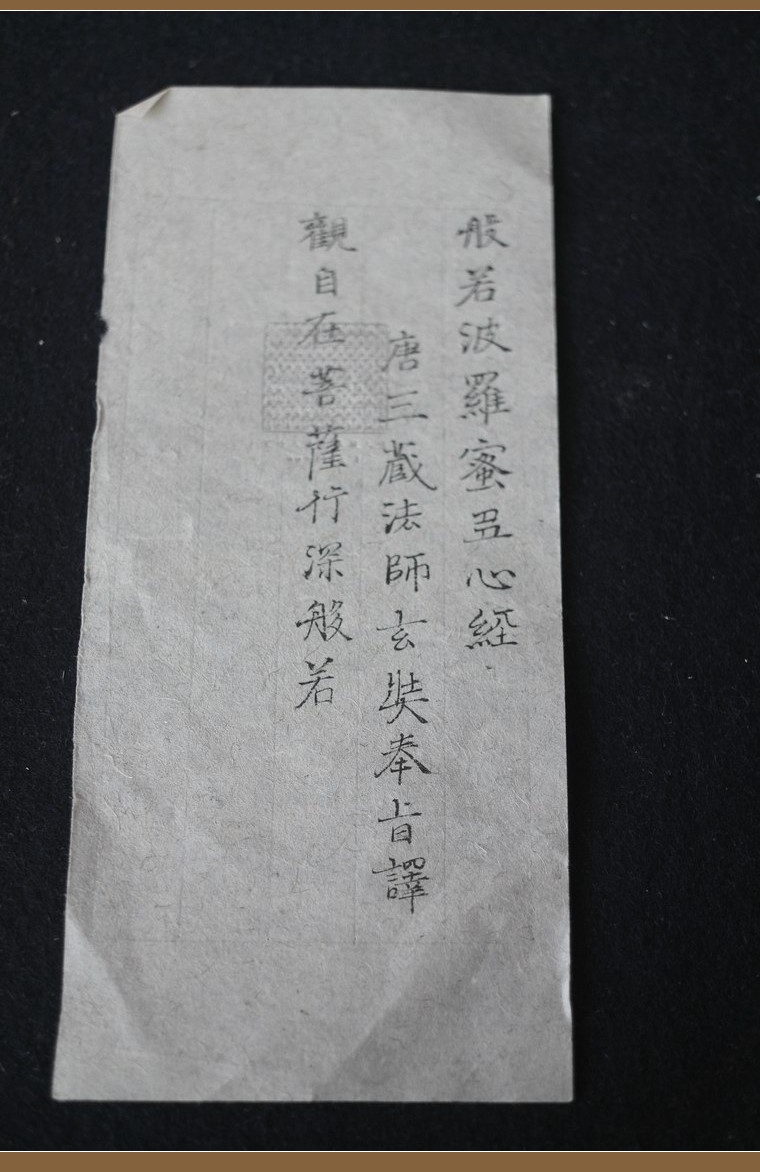 般若波羅蜜多心經
唐三藏法師玄奘奉旨譯
觀自在菩薩行深般若